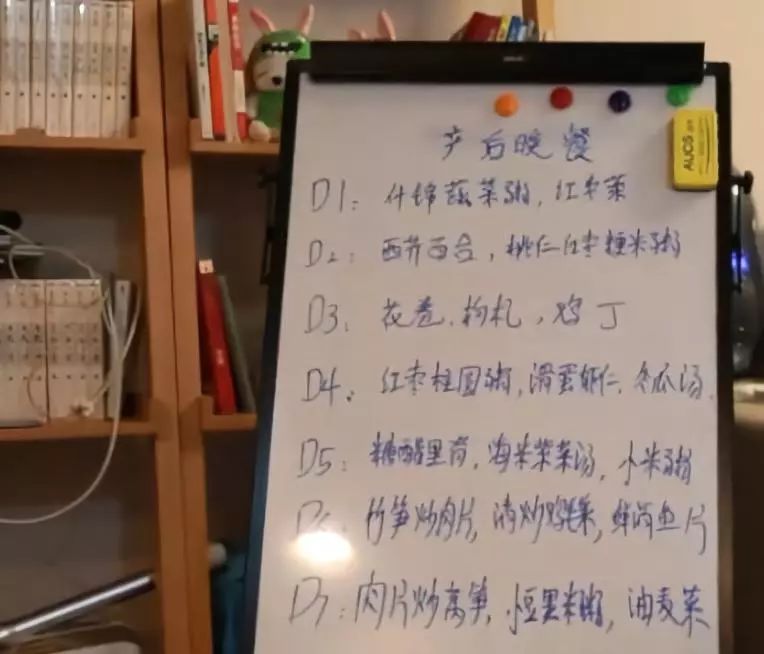 产后晚餐
D1：什锦蔬菜粥，红枣茶
D2：西芹百合，桃仁红枣粳米粥
D3：花卷，枸杞，鸡丁
D4：红枣桂圆粥，滑蛋虾仁，冬瓜汤
D5：糖醋里脊，海米紫菜汤，小米粥
D6：竹笋炒肉片，清炒，鱼片
D7：肉片炒莴笋，小豆黑米粥，油麦菜
AUCS